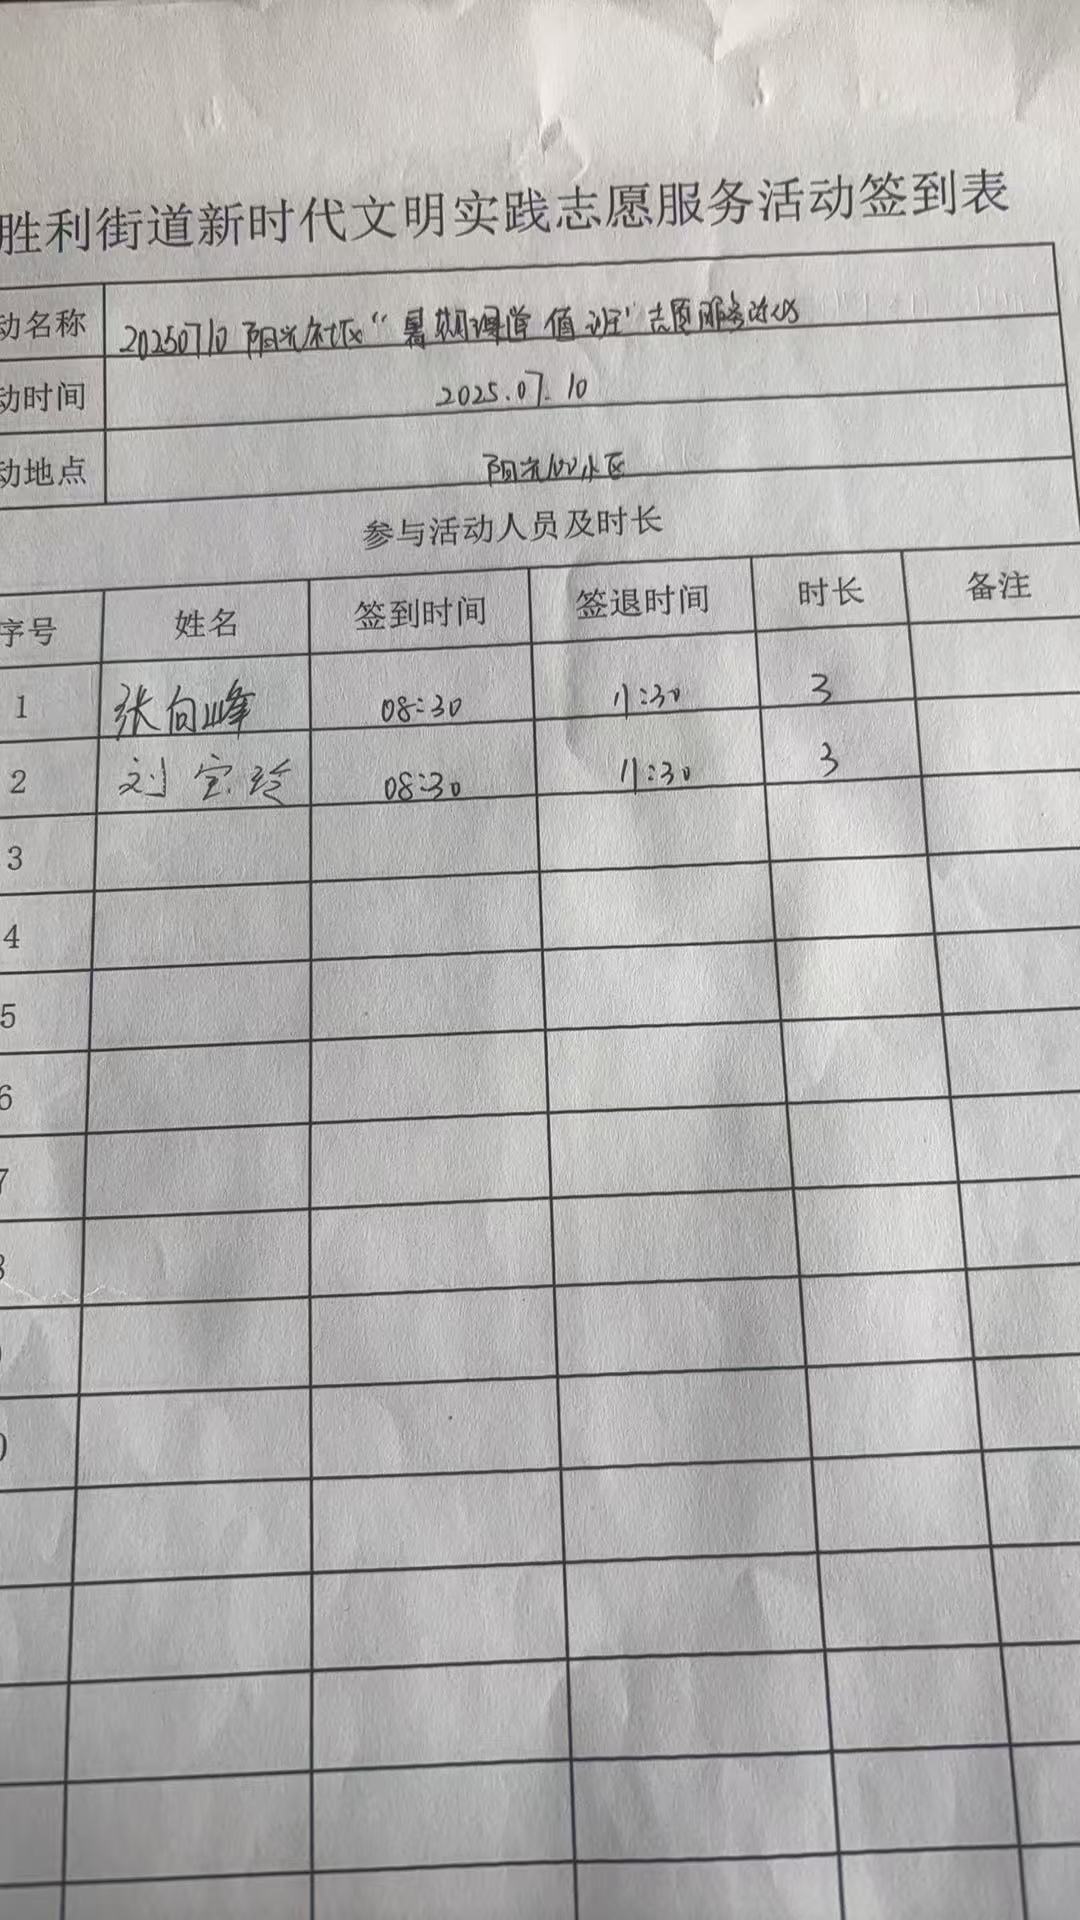 胜利街道新时代文明实践志愿服务活动签到表
动名称 20250710 阳光社区“暑期课堂值班”志愿服务活动
动时间 2025.07.10
动地点 阳光100小区
参与活动人员及时长
序号 姓名 签到时间 签退时间 时长 备注
1 张向峰 08:30 11:30 3
2 刘宝玲 08:30 11:30 3
3
4
5
6
7
8
9
0